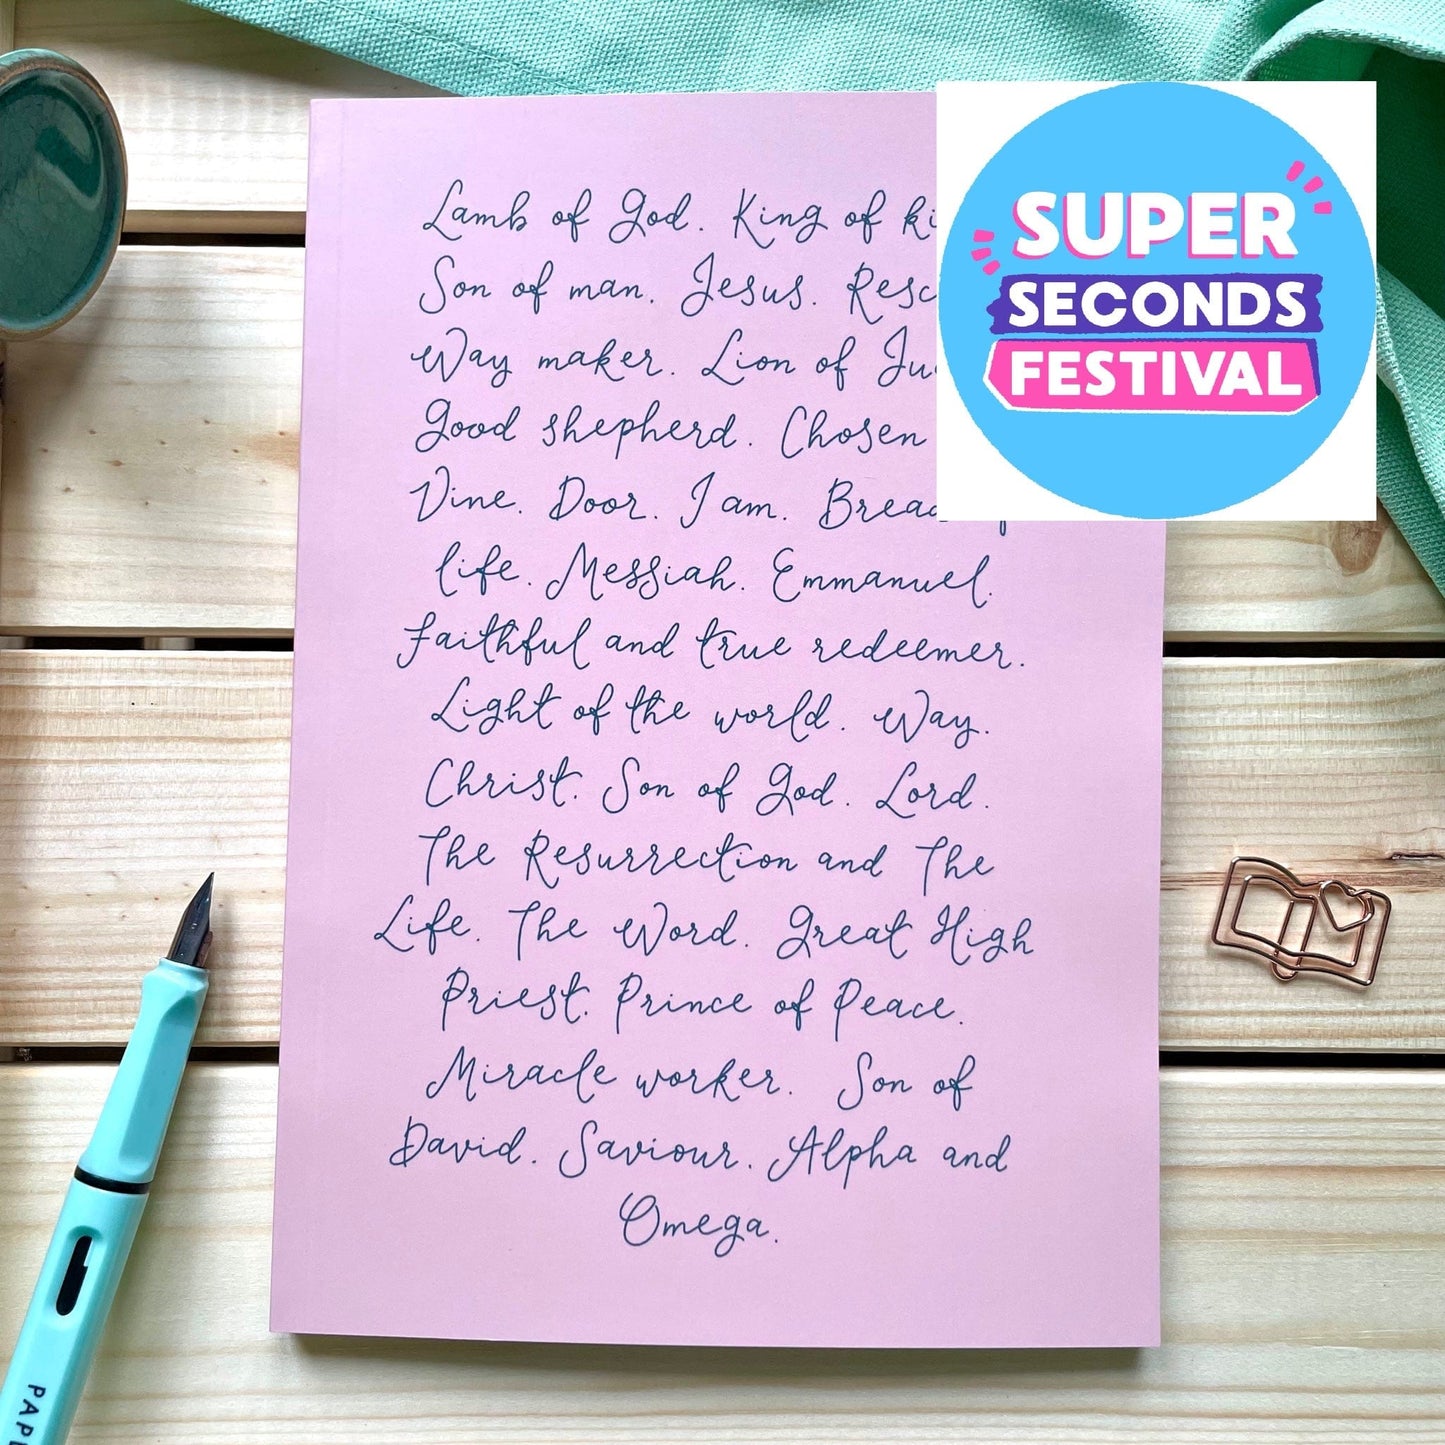 Lamb of God. King of
Son of man. Jesus.
Way maker. Lion of
Good shepherd. Chosen
Vine. Door. I am. Bread of
life. Messiah. Emmanuel.
Faithful and true redeemer.
Light of the world. Way.
Christ. Son of God. Lord.
The Resurrection and The
Life. The Word. Great High
Priest. Prince of Peace.
Miracle worker. Son of
David. Saviour. Alpha and
Omega.
SUPER
SECONDS
FESTIVAL